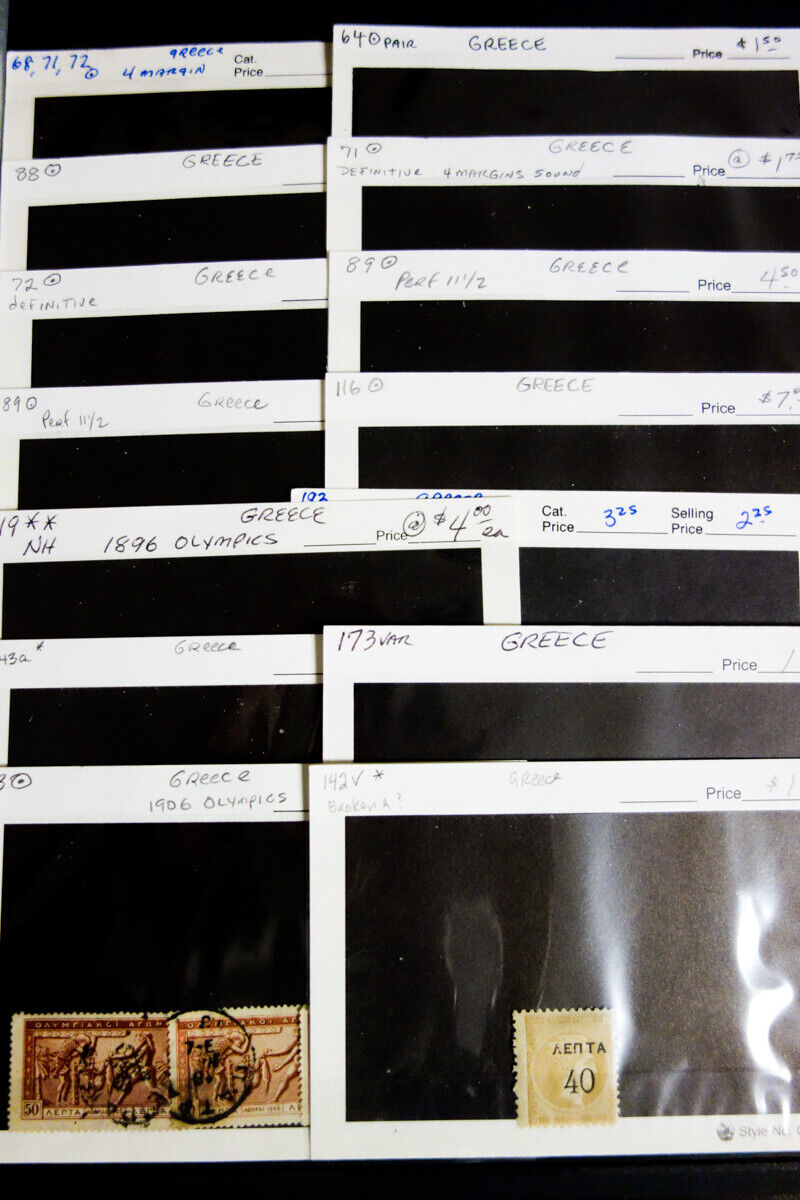 68, 71, 72 ⊙ GREECE
4 MARGIN
Cat.
Price
64 ⊙ PAIR GREECE Price $1.50
88 ⊙ GREECE
71 ⊙ GREECE
DEFINITIVE 4 MARGINS SOUND Price @ $1.
72 ⊙ GREECE
DEFINITIVE
89 ⊙ GREECE
Perf 11 1/2 Price 4.50
89 ⊙ GREECE
Perf 11 1/2
116 ⊙ GREECE
Price $7.
192 GREECE
19 ** GREECE
NH 1896 OLYMPICS Price @ $4.00 ea
Cat.
Price 3.25
Selling
Price 2.25
43a * Greece
173 VAR GREECE
Price
⊙ Greece
1906 OLYMPICS
142V * Greece
Broken A? Price $1
ΟΛΥΜΠΙΑΚΟΙ ΑΓΩΝ
50 ΛΕΠΤΑ
ΛΕΠΤΑ
40
Style No.